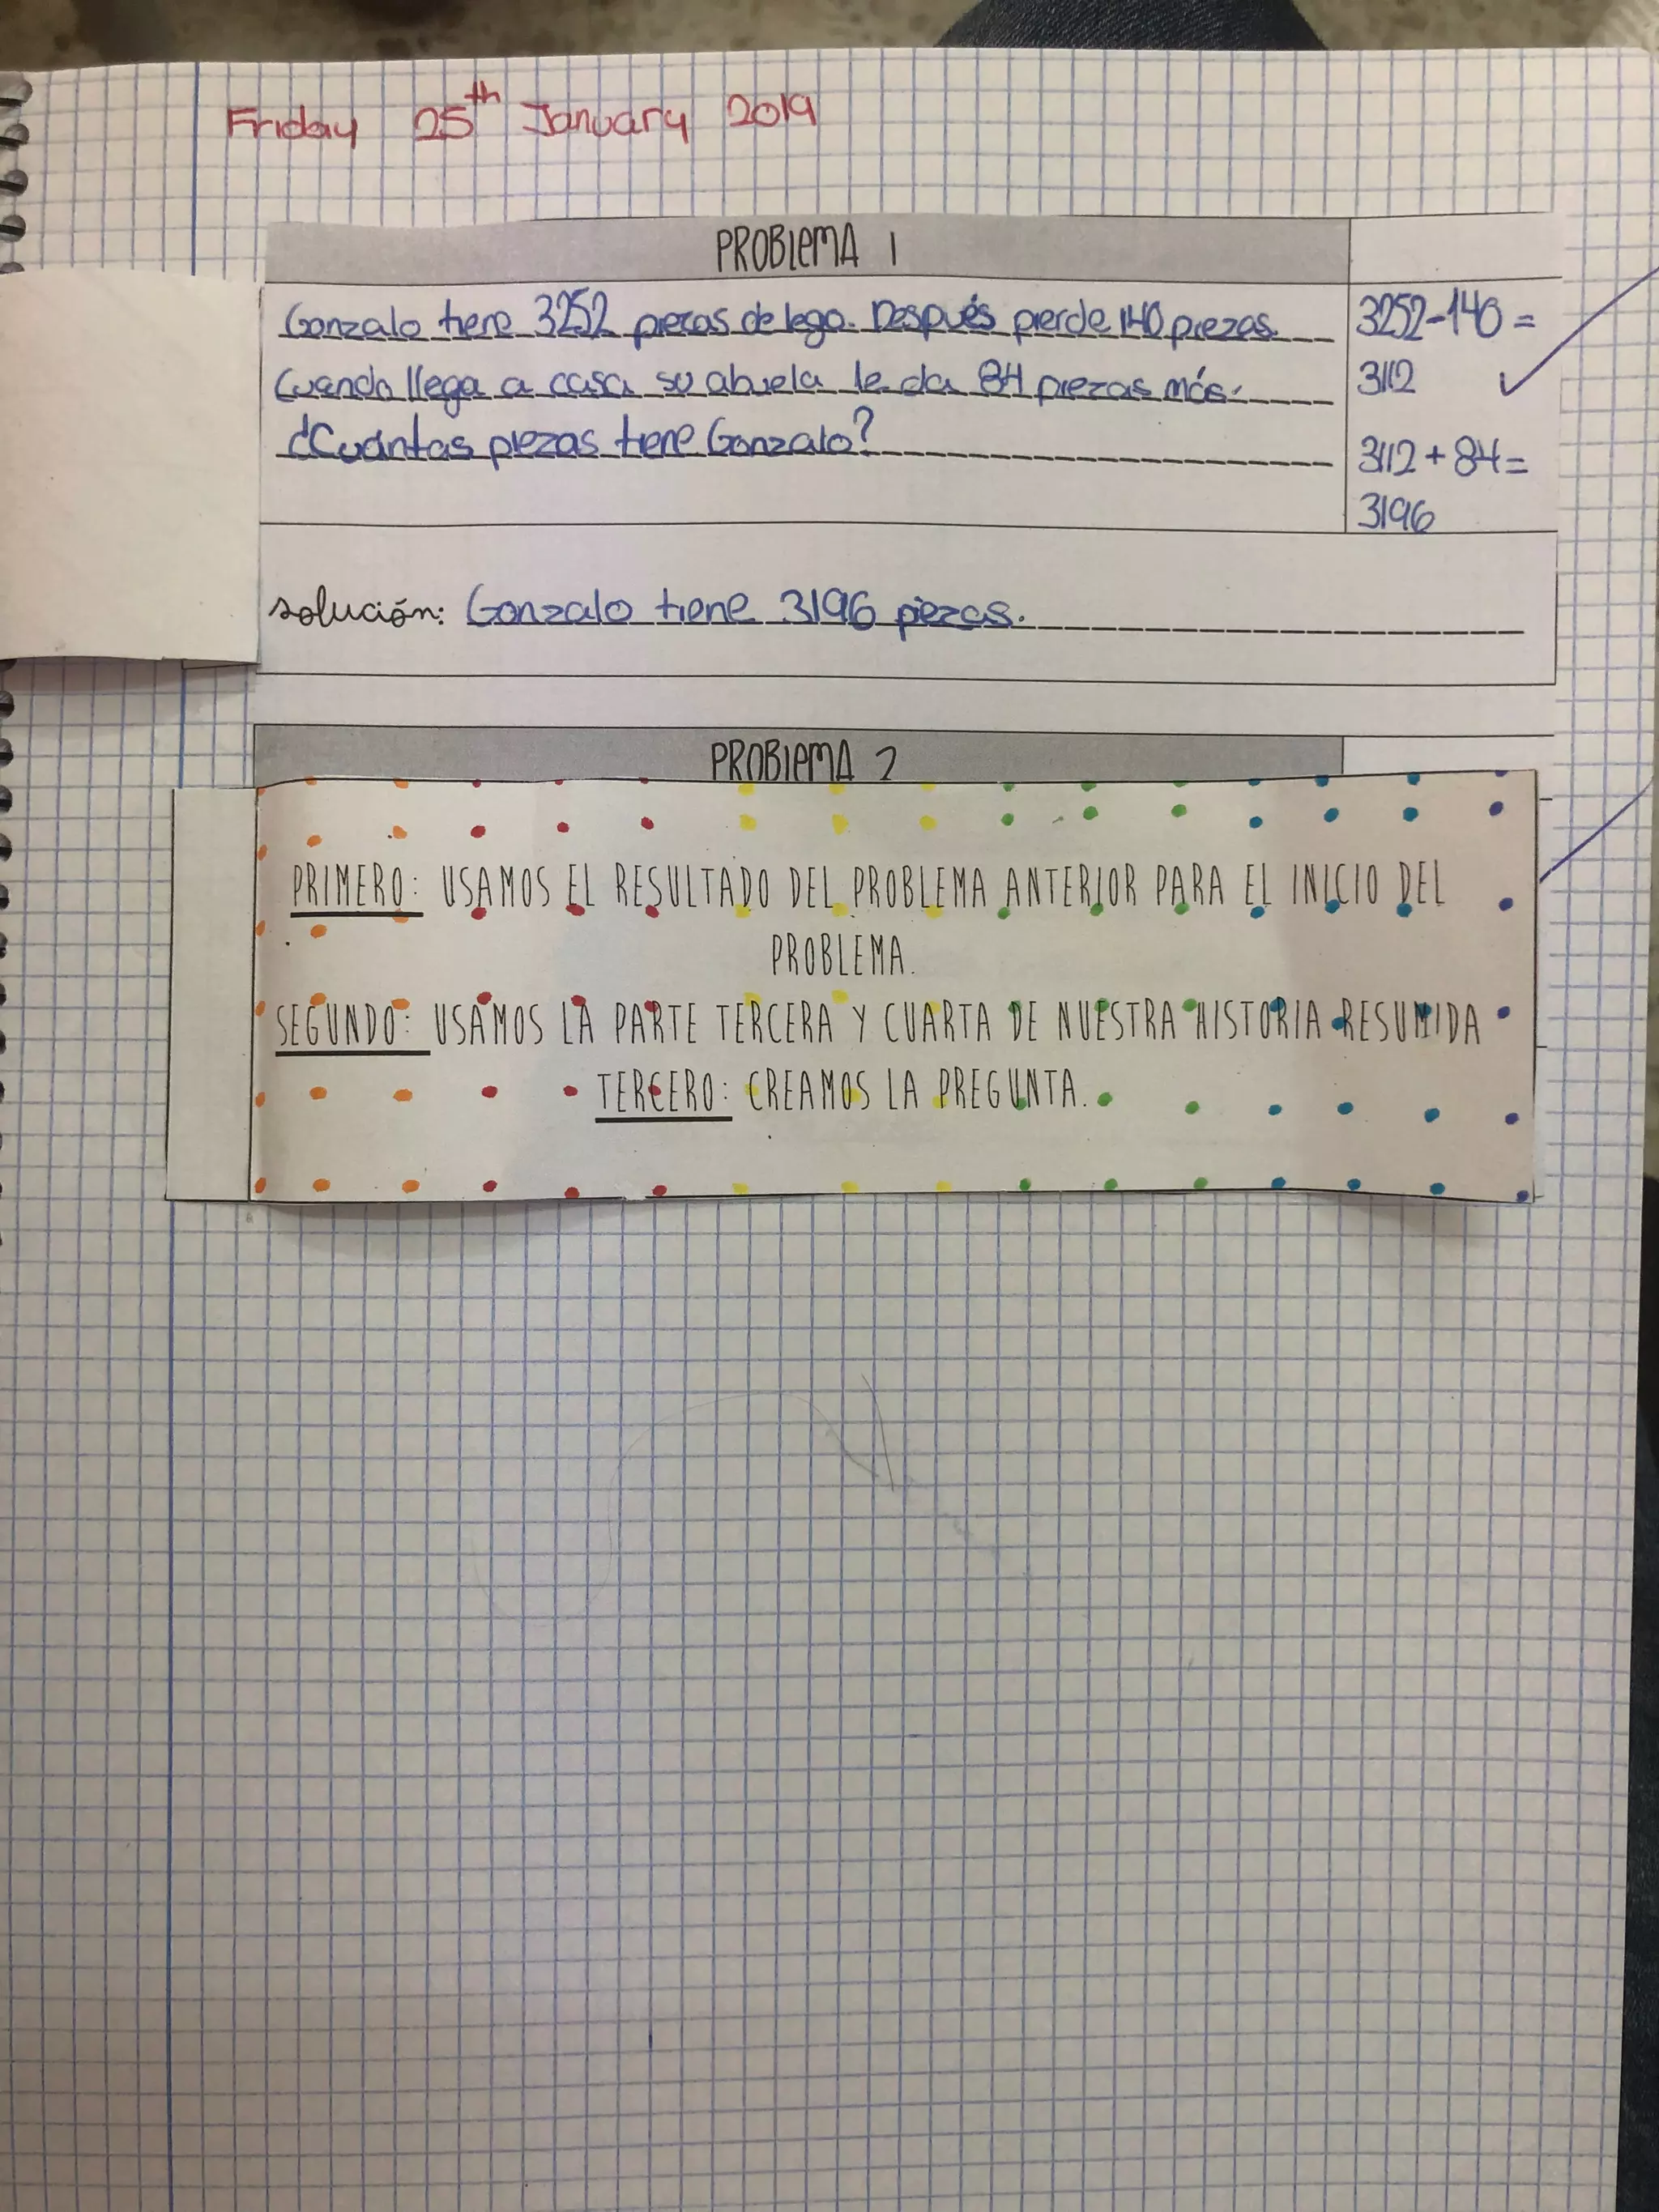 Friday 25th January 2019
PROBLEMA 1
Gonzalo tiene 3252 piezas de lego. Después pierde 140 piezas.
Cuando llega a casa su abuela le da 84 piezas más.
¿Cuántas piezas tiene Gonzalo?
3252-140=
3112
3112+84=
3196
solución: Gonzalo tiene 3196 piezas.
PROBLEMA 2
PRIMERO: USAMOS EL RESULTADO DEL PROBLEMA ANTERIOR PARA EL INICIO DEL
PROBLEMA.
SEGUNDO: USAMOS LA PARTE TERCERA Y CUARTA DE NUESTRA HISTORIA RESUMIDA
TERCERO: CREAMOS LA PREGUNTA.